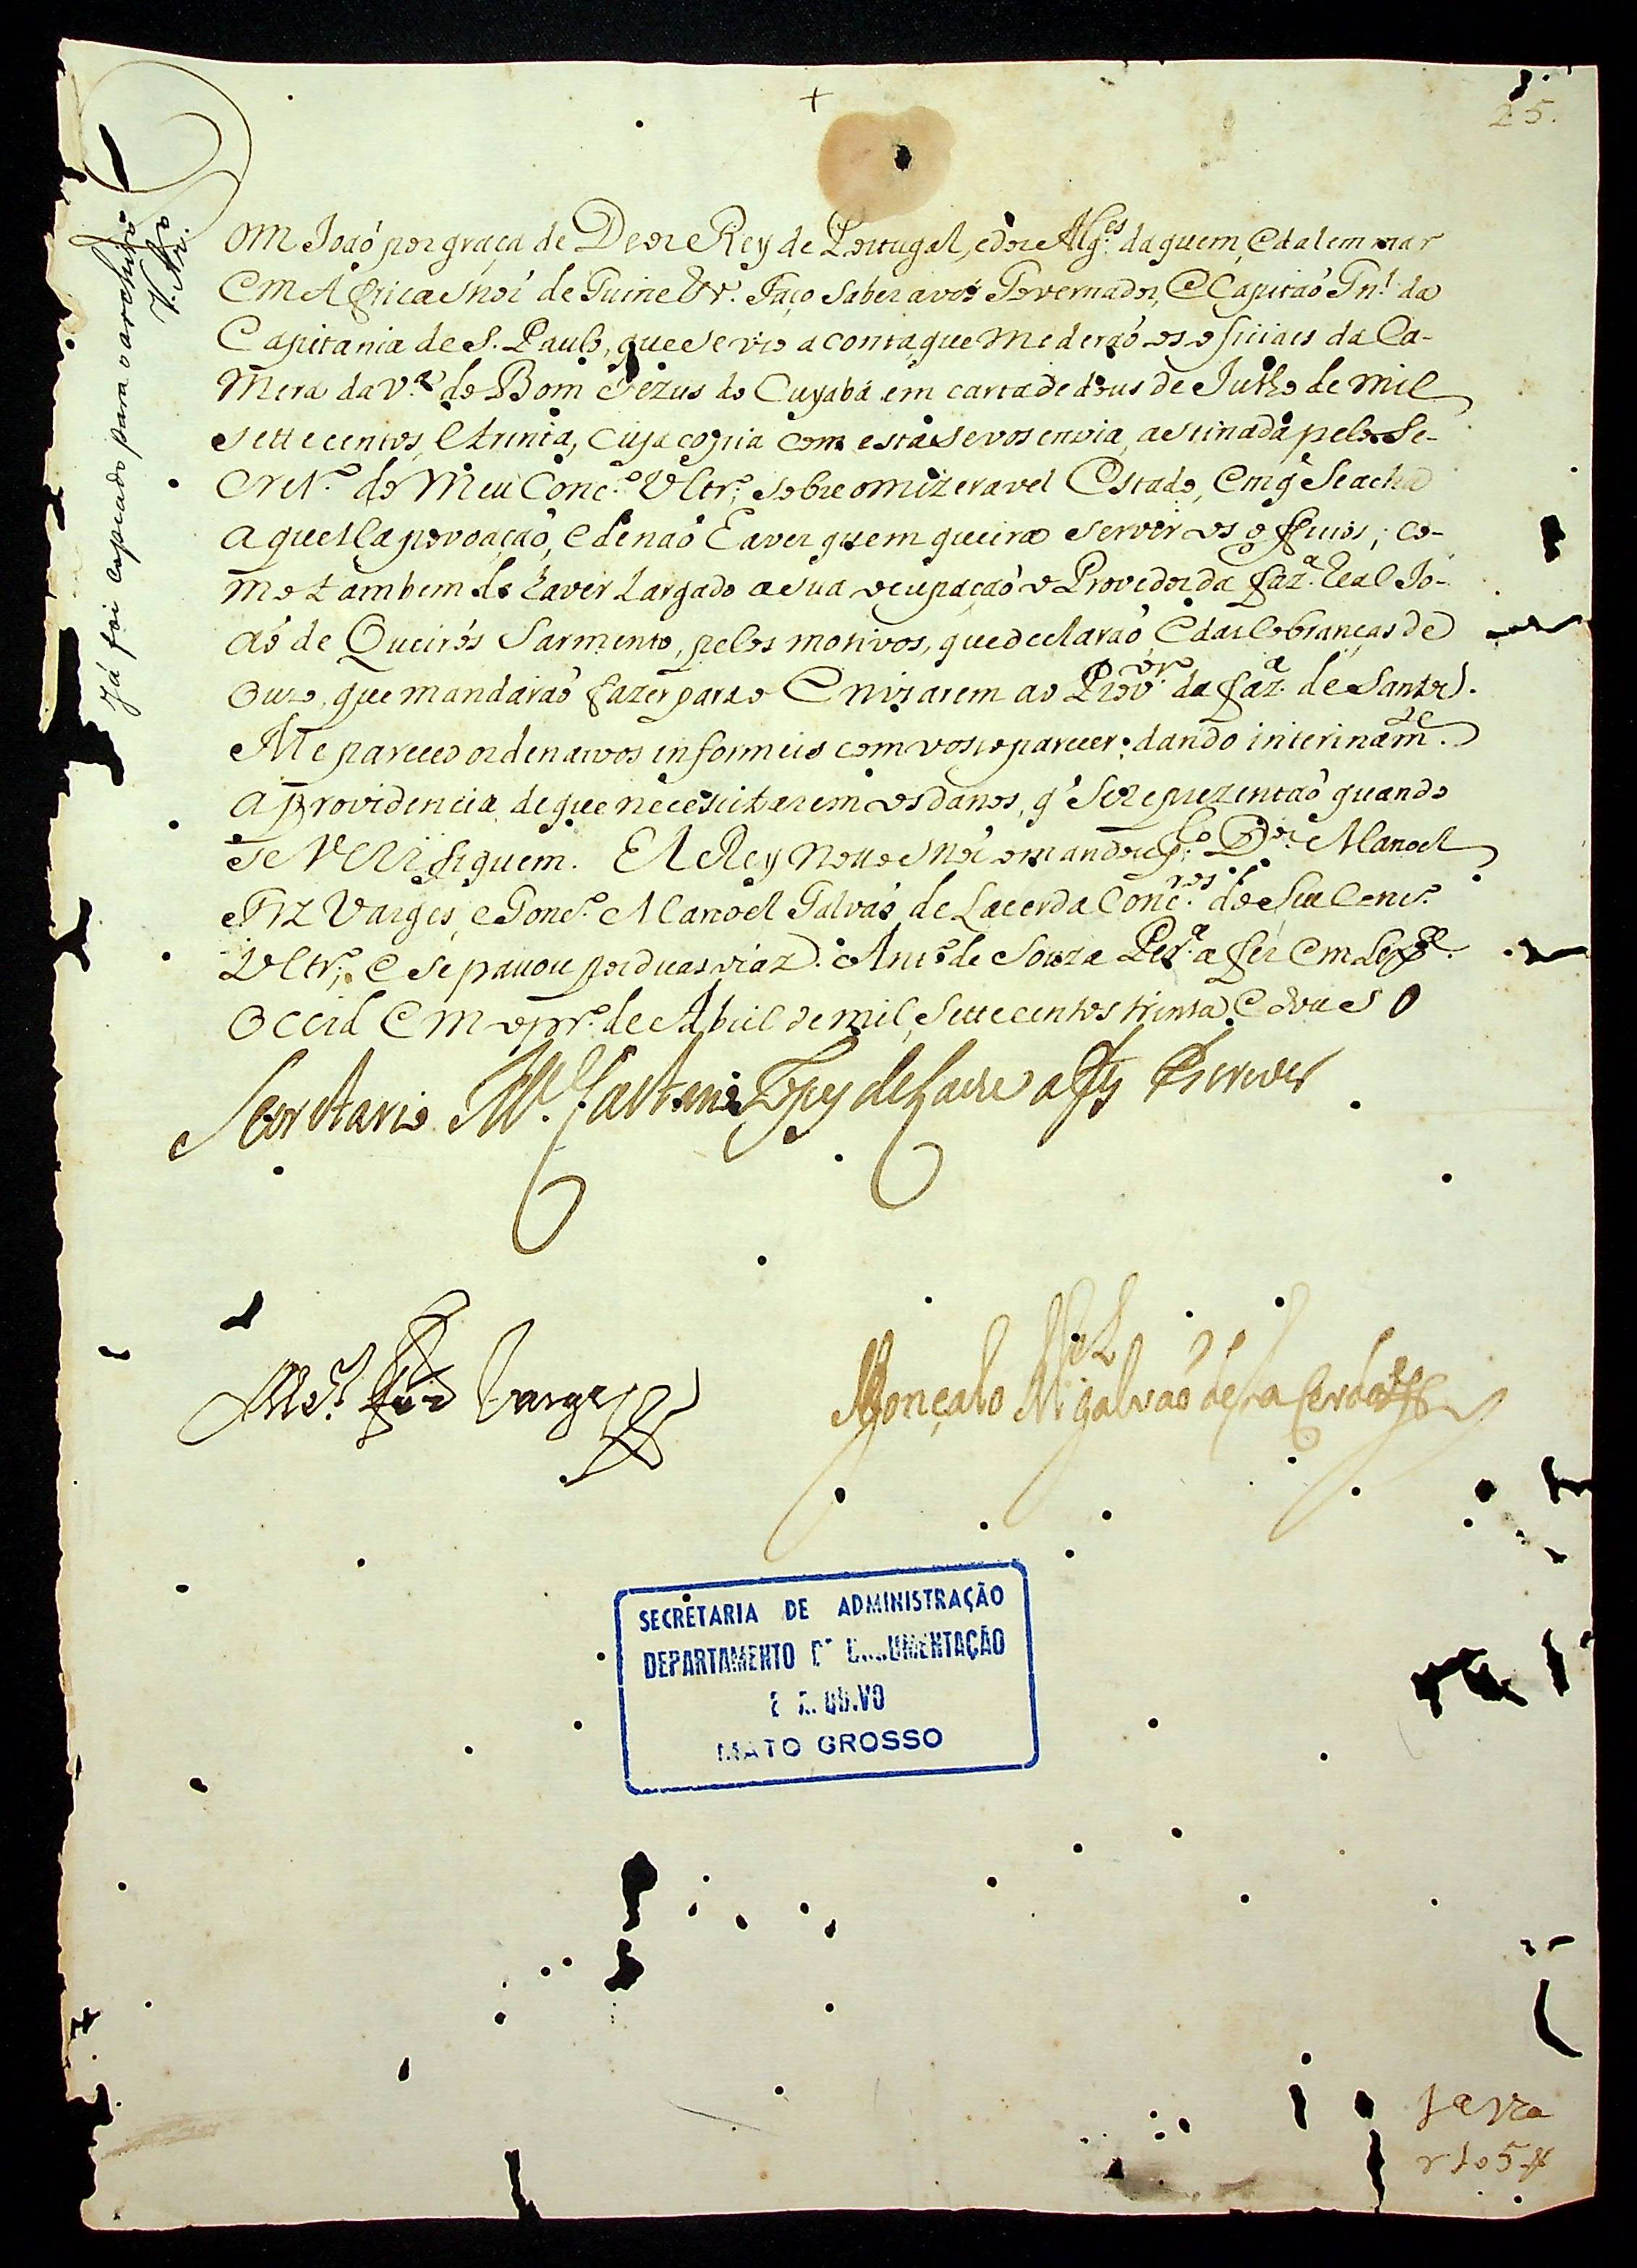 +
25.
Já foi copiado para o archivo
DOM João por graça de Deos Rey de Portugal, e dos Alg.es daquem, e dalem mar
em Africa Snór de Guine &c.ª Faço saber a vós Governador, e Capitaó Gn.l da
Capitania de S. Paulo, que se vio a conta, que me deraó os officiaes da Ca-
mera da V.ª do Bom Jezus do Cuyabá em carta de dous de Julho de mil
settecentos, e trinta, cuja copia com esta se vos envia, assinada pelo Se-
cret.º do Meu Conc.º Ultr.º, sobre o mizeravel Estado, em q̃ se acha
aquella povoaçaó, e de naó haver quem queira servir os officios; co-
mo tambem de haver largado a sua occupaçaó o Provedor da faz.ª Real Jo-
aó de Queirós Sarmento, pelos motivos, que declaraó, e das cobranças de
ouro, que mandáraó fazer para o enviarem ao Prov.or da faz.ª de Santos.
Me pareceo ordenarvos informeis com vosso parecer: dando interinam.te
a providencia, de que necessitarem os danos, q̃ se reprezentaó quando
se verifiquem. El Rey nosso Snór o mandou p.lo D.or Manoel
Frz Varges, e Gonc.º Manoel Galvaó de Lacerda Conc.ros do seu Conc.º
Ultr.º, e se passou por duas vias. Ant.º de Souza Per.ª a fes em Lx.ª
occid. em o pr.º de Abril de mil, settecentos trinta, e dous
Secretario M.el Caetano Lopes de Lavre a fes escrever
M.el Frz Varges
Gonçalo M.el Galvaó de Lacerda
SECRETARIA DE ADMINISTRAÇÃO
DEPARTAMENTO DE DOCUMENTAÇÃO
E ARQUIVO
MATO GROSSO